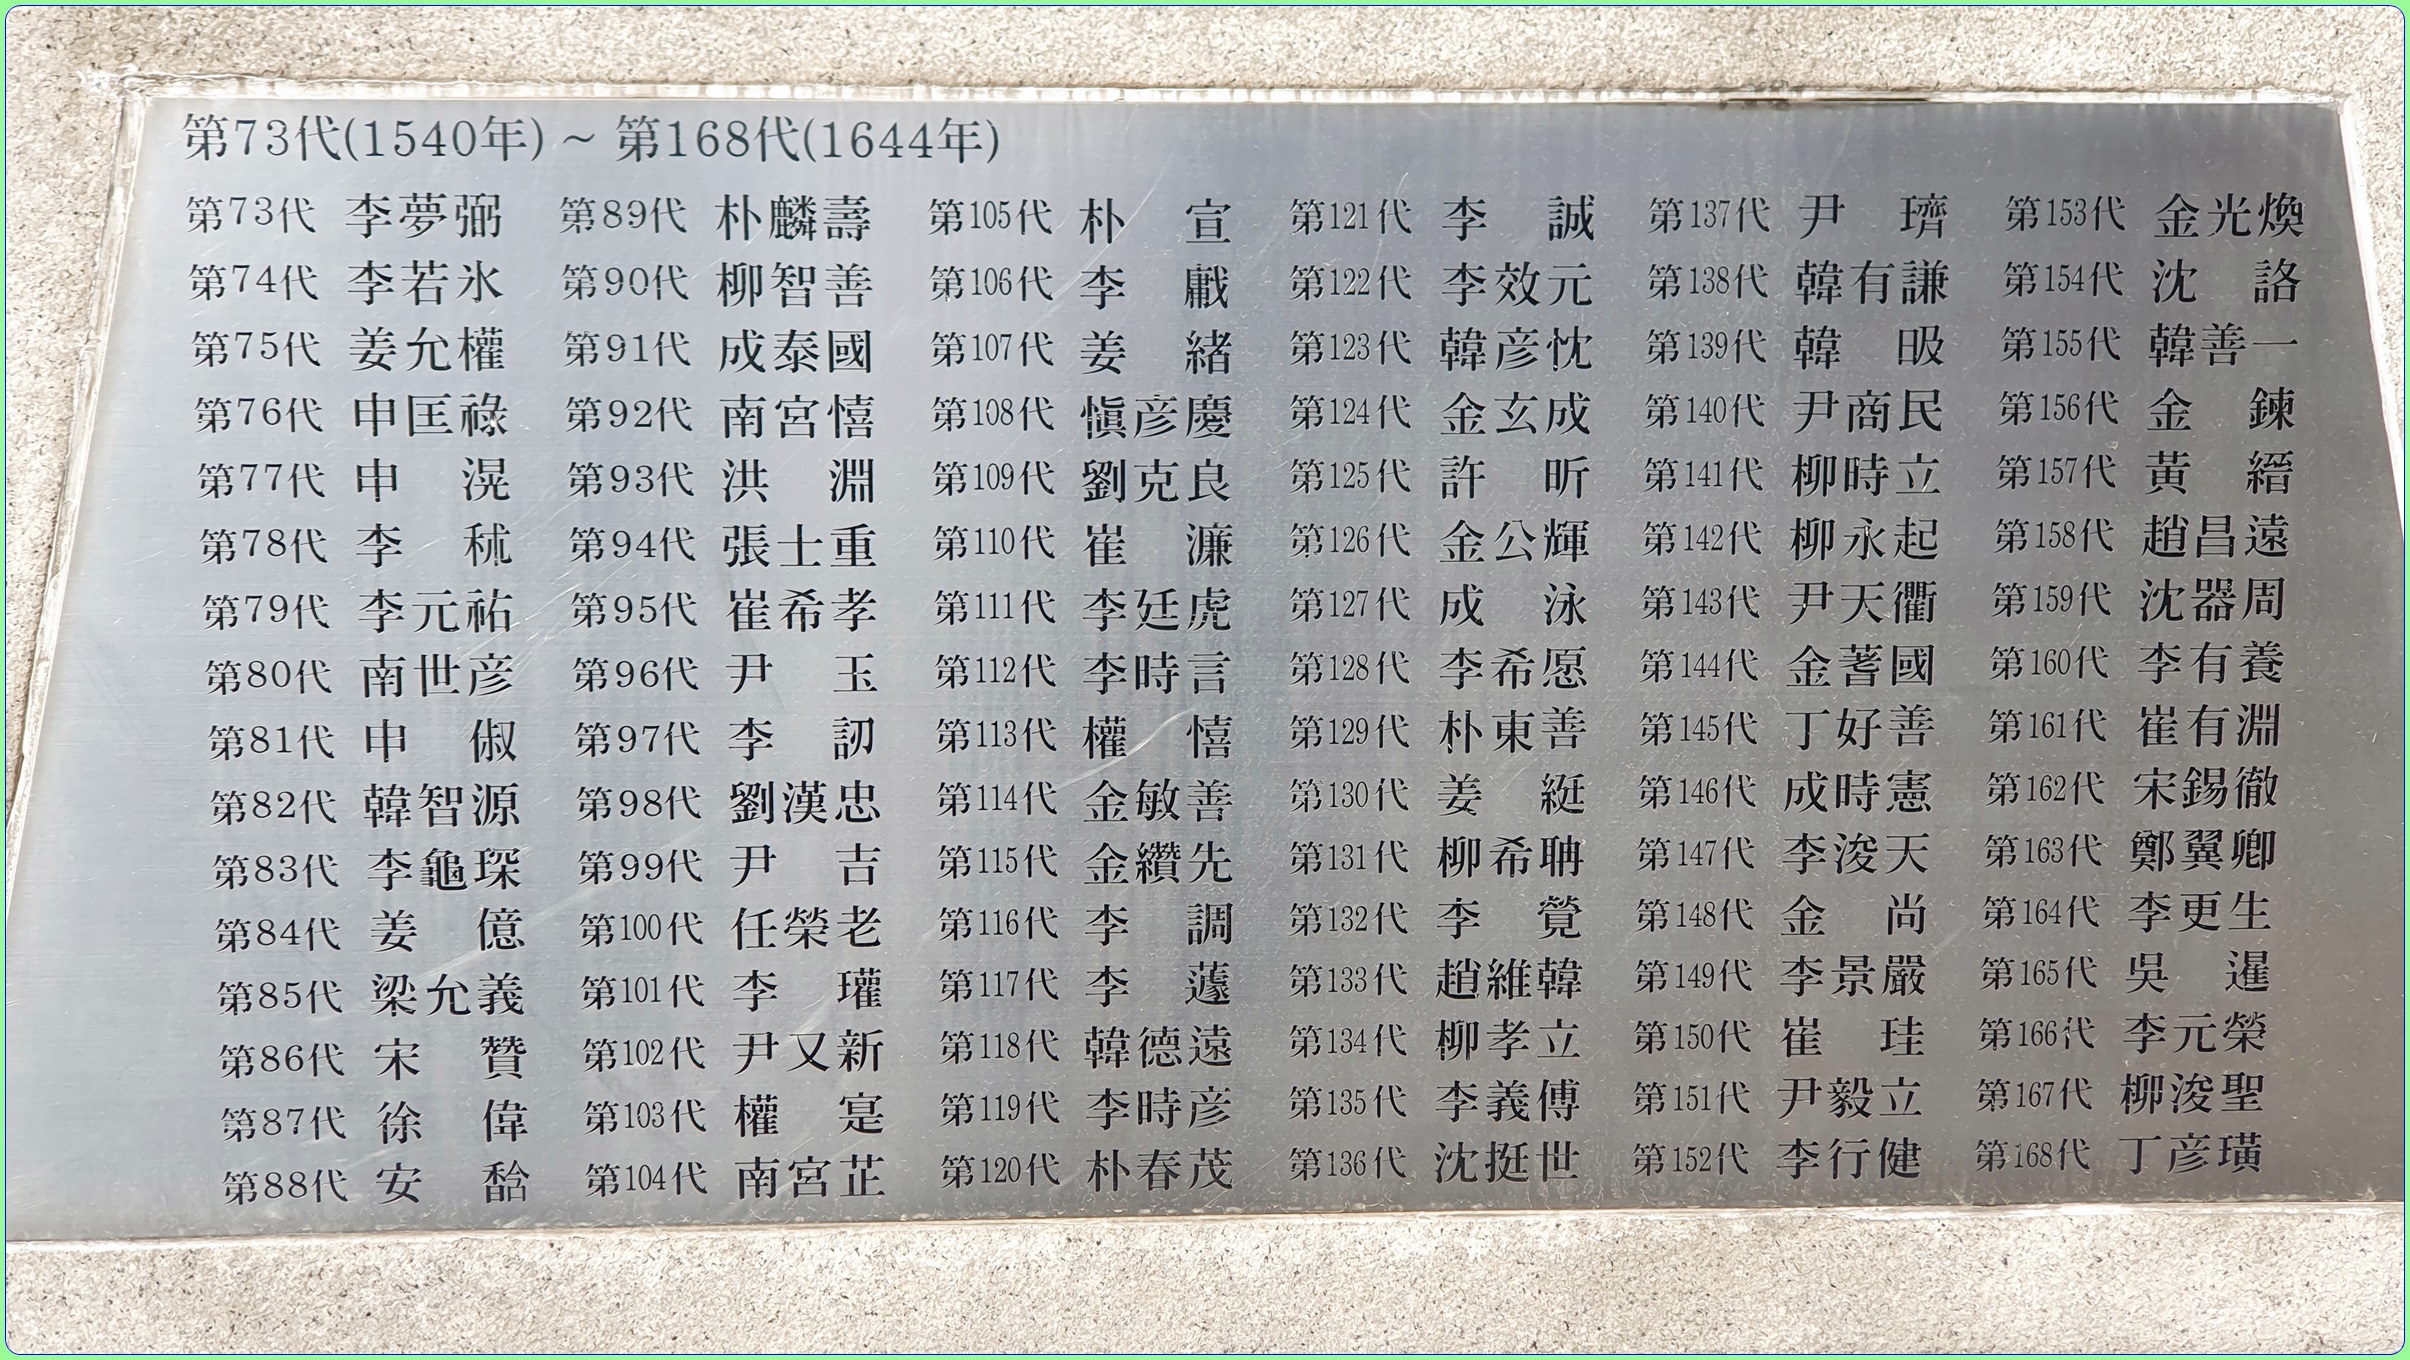 第73代(1540年) ~ 第168代(1644年)
第73代 李夢弼
第74代 李若氷
第75代 姜允權
第76代 申匡祿
第77代 申 滉
第78代 李 秫
第79代 李元祐
第80代 南世彦
第81代 申 俶
第82代 韓智源
第83代 李龜琛
第84代 姜 億
第85代 梁允義
第86代 宋 贊
第87代 徐 偉
第88代 安 馠
第89代 朴麟壽
第90代 柳智善
第91代 成泰國
第92代 南宮憘
第93代 洪 淵
第94代 張士重
第95代 崔希孝
第96代 尹 玉
第97代 李 訒
第98代 劉漢忠
第99代 尹 吉
第100代 任榮老
第101代 李 瓘
第102代 尹又新
第103代 權 寔
第104代 南宮芷
第105代 朴 宣
第106代 李
第107代 姜 緖
第108代 愼彦慶
第109代 劉克良
第110代 崔 濂
第111代 李廷虎
第112代 李時言
第113代 權 憘
第114代 金敏善
第115代 金纘先
第116代 李 調
第117代 李 蘧
第118代 韓德遠
第119代 李時彦
第120代 朴春茂
第121代 李 誠
第122代 李效元
第123代 韓彦忱
第124代 金玄成
第125代 許 昕
第126代 金公輝
第127代 成 泳
第128代 李希愿
第129代 朴東善
第130代 姜 綎
第131代 柳希聃
第132代 李 覺
第133代 趙維韓
第134代 柳孝立
第135代 李義傅
第136代 沈挺世
第137代 尹 璾
第138代 韓有謙
第139代 韓 昅
第140代 尹商民
第141代 柳時立
第142代 柳永起
第143代 尹天衢
第144代 金蓍國
第145代 丁好善
第146代 成時憲
第147代 李浚天
第148代 金 尚
第149代 李景嚴
第150代 崔 珪
第151代 尹毅立
第152代 李行健
第153代 金光煥
第154代 沈 詻
第155代 韓善一
第156代 金 鍊
第157代 黃 縉
第158代 趙昌遠
第159代 沈器周
第160代 李有養
第161代 崔有淵
第162代 宋錫徹
第163代 鄭翼卿
第164代 李更生
第165代 吳 暹
第166代 李元榮
第167代 柳浚聖
第168代 丁彦璜